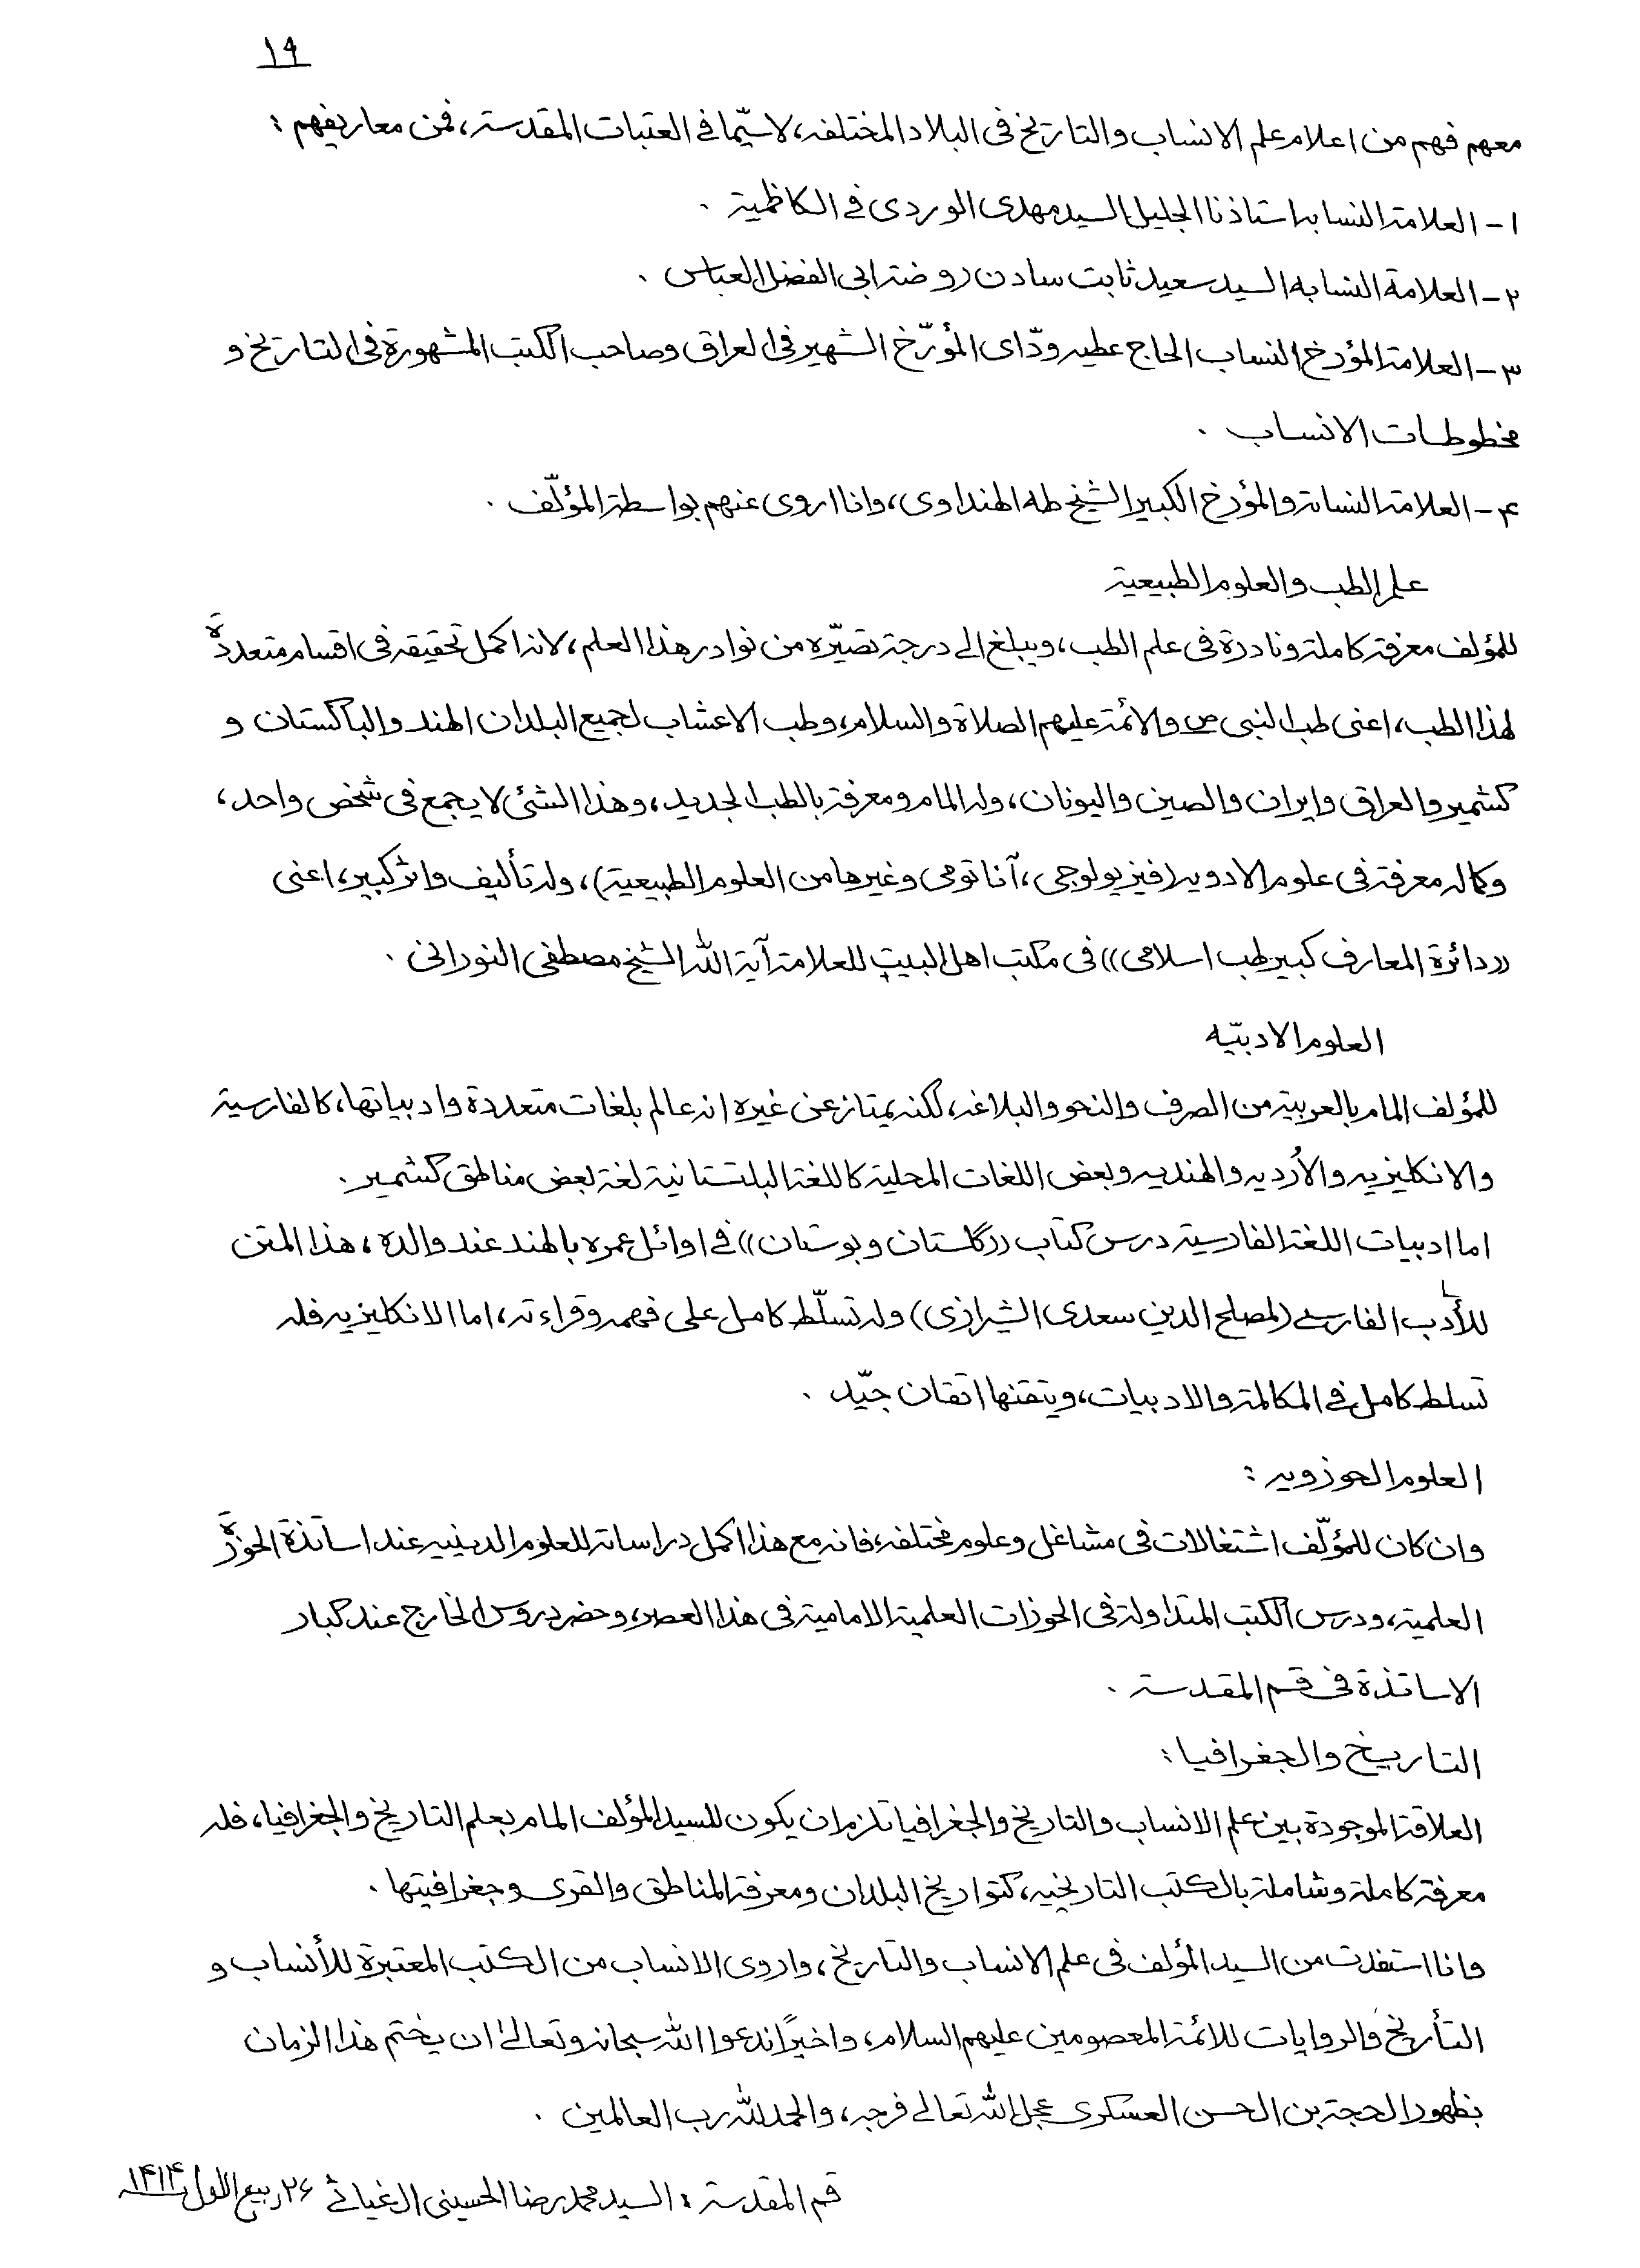 ١٩
معهم فهم من اعلام علم الانساب والتاريخ فى البلاد المختلفه، لاسيّما في العتبات المقدسة، فمن معاريفهم :
١ – العلامة النسابه استاذنا الجليل السيد مهدى الوردى في الكاظمية .
٢ – العلامة النسابه السيد سعيد ثابت سادن روضة ابى الفضل العباس .
٣ – العلامة المؤرخ النساب الحاج عطيه ودّاى المؤرّخ الشهير فى العراق وصاحب الكتب المشهورة فى التاريخ و
مخطوطات الانساب .
۴ – العلامة النسابة والمؤرخ الكبير الشيخ طه الهنداوى، وانا اروى عنهم بواسطة المؤلّف .
علم الطب والعلوم الطبيعية
للمؤلف معرفة كاملة ونادرة فى علم الطب، ويبلغ الى درجة تصيّره من نوادر هذا العلم، لانه اكمل تحقيقه فى اقسام متعددة
لهذا الطب، اعنى طب النبى ص والائمة عليهم الصلاة والسلام، وطب الاعشاب لجميع البلدان الهند والباكستان و
كشمير والعراق وايران والصين واليونان، وله المام ومعرفة بالطب الجديد، وهذا الشئ لا يجمع فى شخص واحد،
وكماله معرفة فى علوم الادويه (فيزيولوجى، آناتومى وغيرها من العلوم الطبيعية)، وله تأليف واثر كبير، اعنى
((دائرة المعارف كبير طب اسلامى)) فى مكتب اهل البيت للعلامة آية الله الشيخ مصطفى النورانى .
العلوم الادبيّه
للمؤلف المام بالعربية من الصرف والنحو والبلاغه، لكنه يمتاز عن غيره انه عالم بلغات متعددة وادبياتها، كالفارسية
والانكليزيه والأرديه والهنديه وبعض اللغات المحلية كاللغة البلتستانية لغة بعض مناطق كشمير.
اما ادبيات اللغة الفارسية درس كتاب ((گلستان وبوستان)) في اوائل عمره بالهند عند والده، هذا المتن
للأدب الفارسي (لمصلح الدين سعدى الشيرازى) وله تسلّط كامل على فهمه وقراءته، اما الانكليزيه فله
تسلط كامل في المكالمة والادبيات، ويتقنها اتقان جيّد .
العلوم الحوزويه :
وان كان للمؤلّف اشتغالات فى مشاغل وعلوم مختلفه، فانه مع هذا اكمل دراساته للعلوم الدينيه عند اساتذة الحوزة
العلمية، ودرس الكتب المتداولة فى الحوزات العلمية الامامية فى هذا العصر، وحضر دروس الخارج عند كبار
الاساتذة فى قم المقدسة .
التاريخ والجغرافيا :
العلاقة الموجودة بين علم الانساب والتاريخ والجغرافيا تلزم ان يكون للسيد المؤلف المام بعلم التاريخ والجغرافيا، فله
معرفة كاملة وشاملة بالكتب التاريخيه، كتواريخ البلدان ومعرفة المناطق والقرى وجغرافيتها .
وانا استفدت من السيد المؤلف فى علم الانساب والتاريخ، واروى الانساب من الكتب المعتبرة للأنساب و
التأريخ والروايات للائمة المعصومين عليهم السلام، واخيراً ندعوا الله سبحانه وتعالى ان يختم هذا الزمان
بظهور الحجة بن الحسن العسكرى عجل الله تعالى فرجه، والحمد لله رب العالمين .
قم المقدسة : السيد محمد رضا الحسينى الغياثي ٢۶ ربيع الاول ١۴١۴